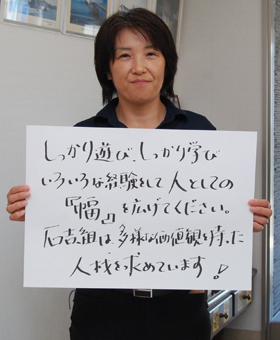 しっかり遊び、しっかり学び
いろいろな経験をして人としての
『幅』を広げてください。
石吉組は多様な価値観を持った
人材を求めています！